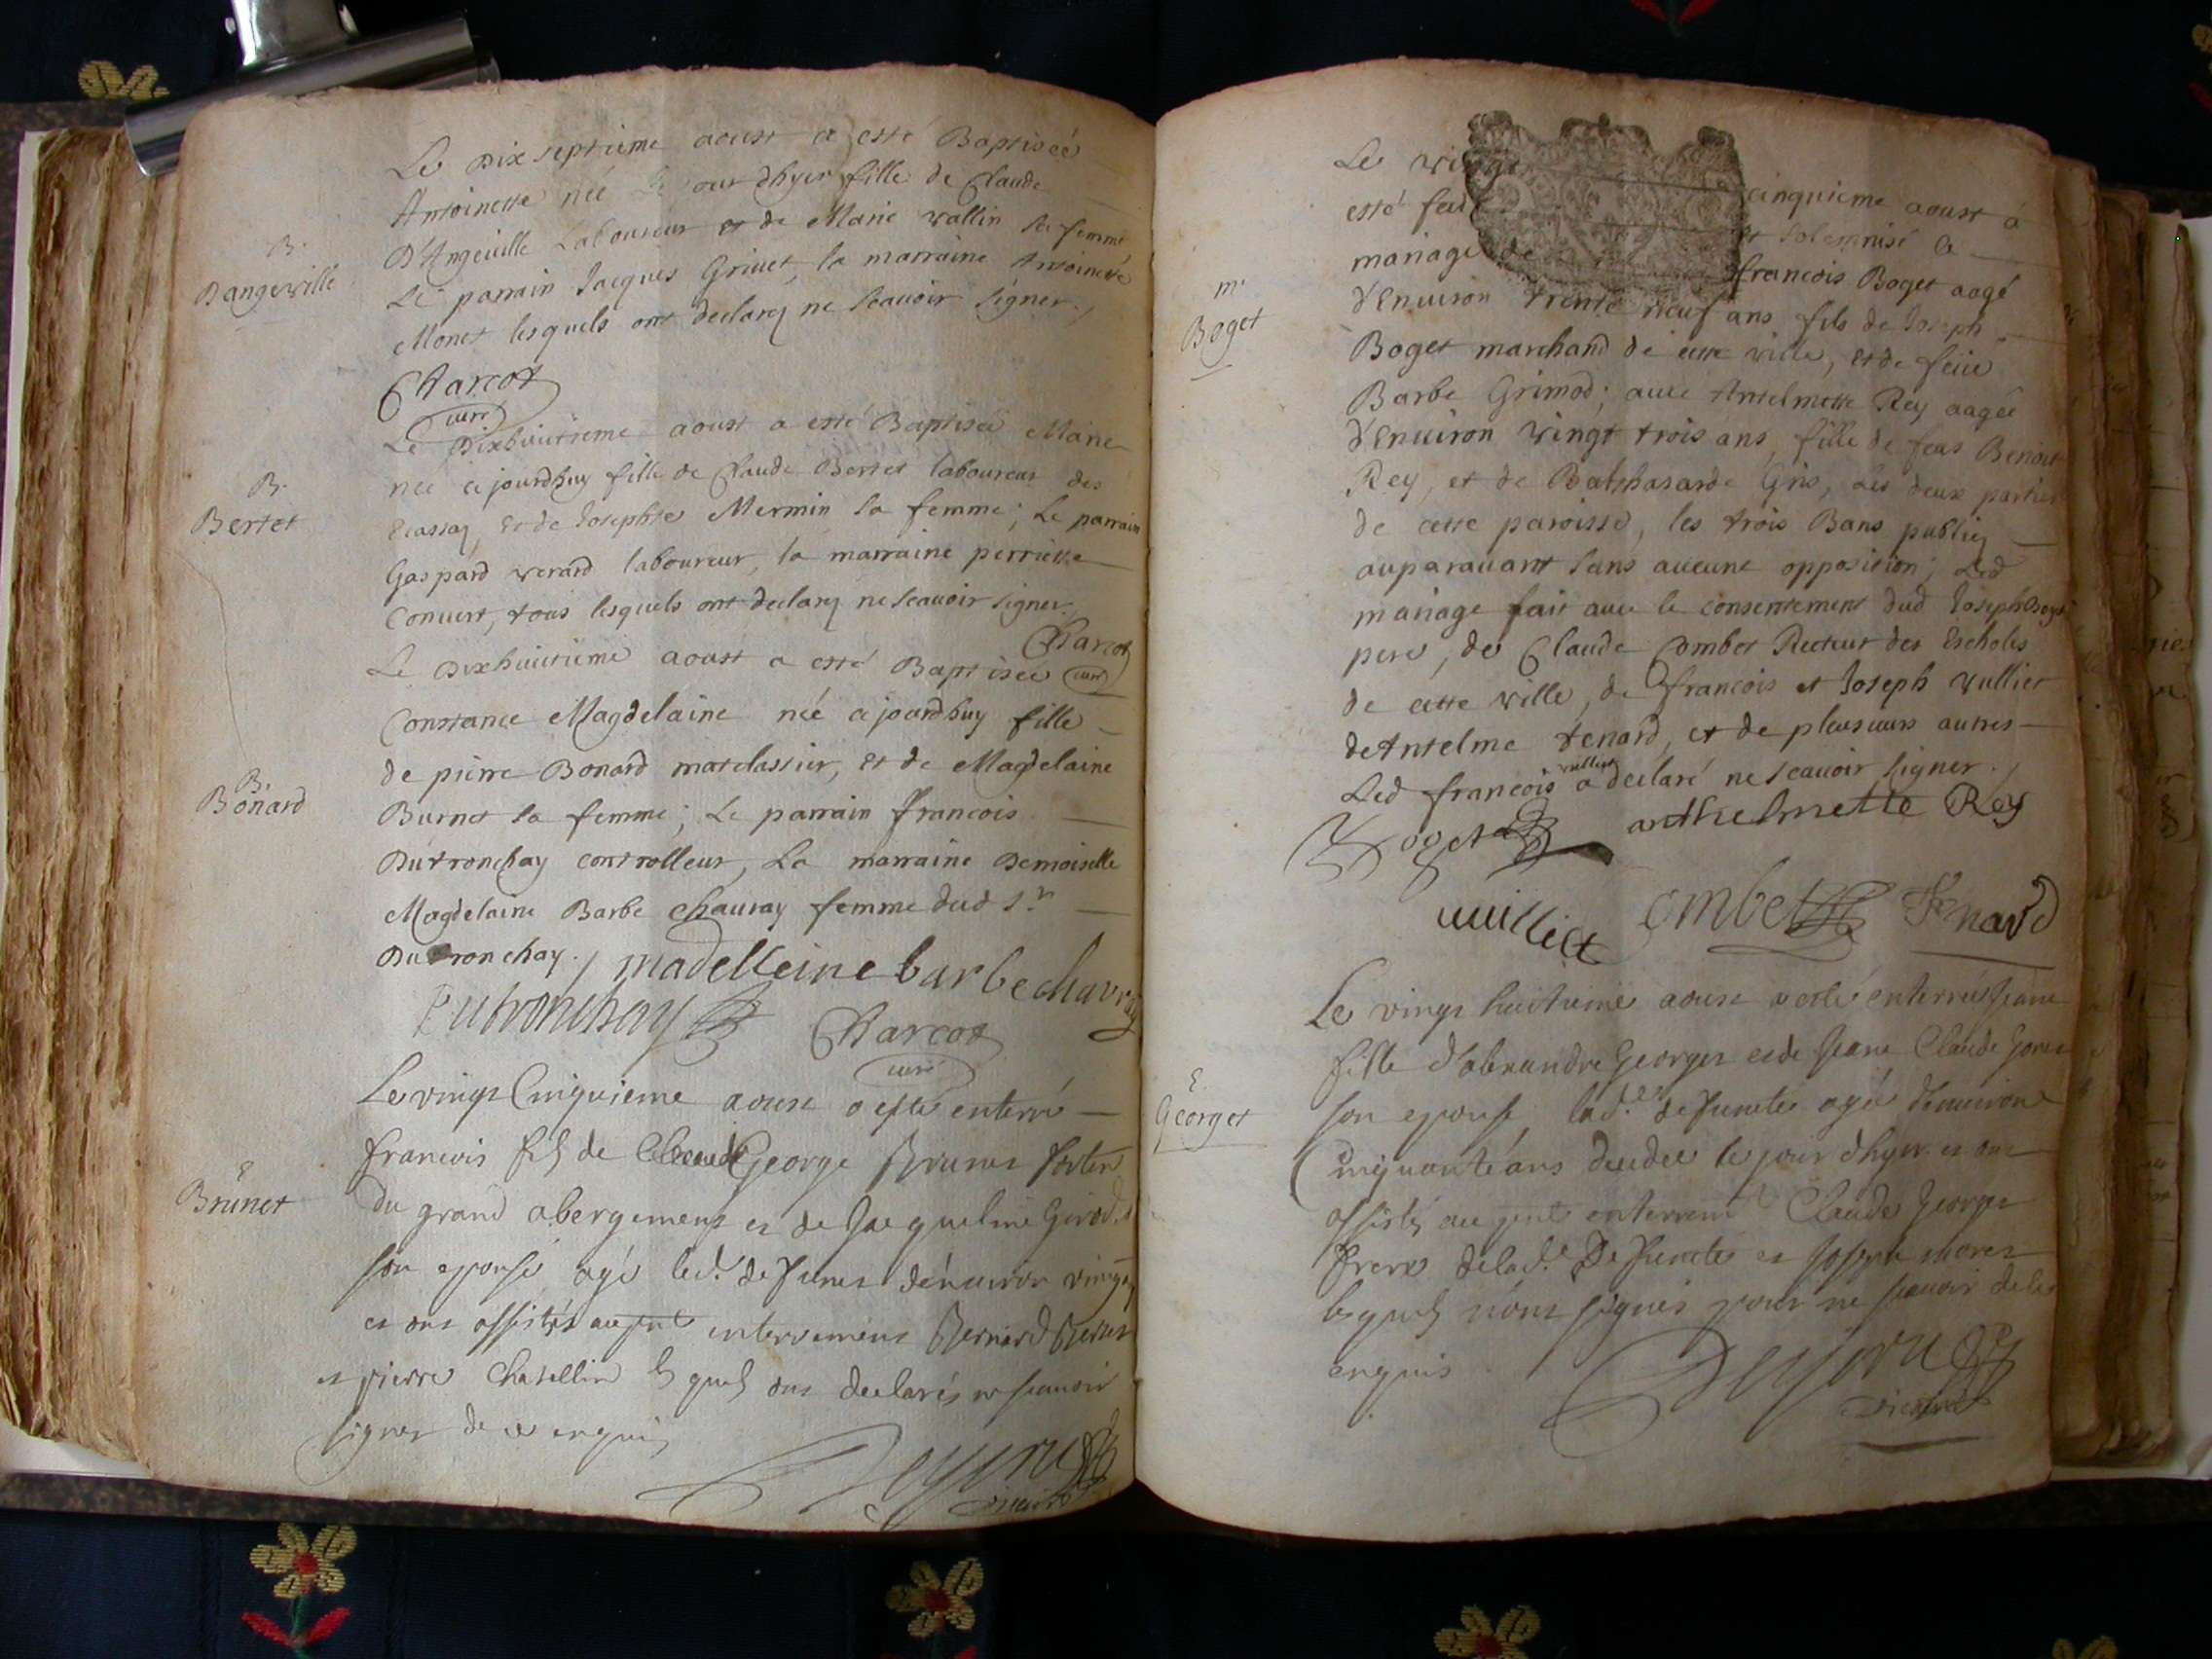 B.
Dangeville
Le Dix septieme aoust a esté Baptisée
Antoinette née le jour dhyer fille de Claude
D'Angeville Laboureur et de Marie vallin sa femme
Le parrain Jacques Grivet, la marraine Antoinette
Monet lesquels ont declarez ne scauoir signer.
Charcot
curé
B.
Bertet
Le Dixhuictieme aoust a esté Baptisée Marie
née cejourdhuy fille de Claude Bertet laboureur des
Ecassaz, et de Josephte Mermin sa femme; Le parrain
Gaspard verard laboureur, la marraine perriette
Convert, tous lesquels ont declarez ne scauoir signer.
Charcot
curé
B.
Bonard
Le Dixhuictieme aoust a esté Baptisée
Constance Magdelaine née cejourdhuy fille
de pierre Bonard matelassier, et de Magdelaine
Burnet sa femme; Le parrain francois
Dutronchay controlleur, La marraine Demoiselle
Magdelaine Barbe Chauray femme dud Sr
Dutronchay.
madelleine barbe chavray
Dutronchay
Charcot
curé
E
Brunet
Le vingt Cinquieme aoust a esté enterré
francois fils de Claude George Brunet
du grand abergement et de Jacqueline Girod
son epouse agé led. defunct d'enuiron vingt
et ont assistés au pnt enterrement Bernard
et pierre Chatellin lesquels ont declarés ne scauoir
signer de ce enquis
vicaire
m.
Boget
Le vingt cinquieme aoust a
esté et solemnisé le
mariage de francois Boget aagé
d'Enuiron trente neuf ans fils de Joseph
Boget marchand de cette ville, et de feüe
Barbe Grimod; auec Antelmette Rey aagée
d'Enuiron vingt trois ans, fille de feus Benoit
Rey, et de Balthasarde Gris, les deux parties
de cette paroisse, les trois Bans publiez
auparauant sans aucune opposition; Led
mariage fait auec le consentement dud Joseph Boget
pere, de Claude Combet Recteur des Escholes
de cette ville, de francois et Joseph vulliet
de Antelme tenard, et de plusieurs autres
Led francois vulliet a declaré ne scauoir signer.
Boget
anthelmette Rey
vuilliet
Combet
Tenard
E
Georget
Le vingt huictieme aoust a esté enterrée Jeane
fille d'alexandre Georget et de Jeane Claude
son epouse, lad. defuncte agée d'enuiron
Cinquante ans decedée le jour d'hyer et ont
assistés au pnt enterremt Claude Georget
frere de lad. Defuncte et Joseph moret
lesquels n'ont signés pour ne scauoir de ce
enquis
vicaire